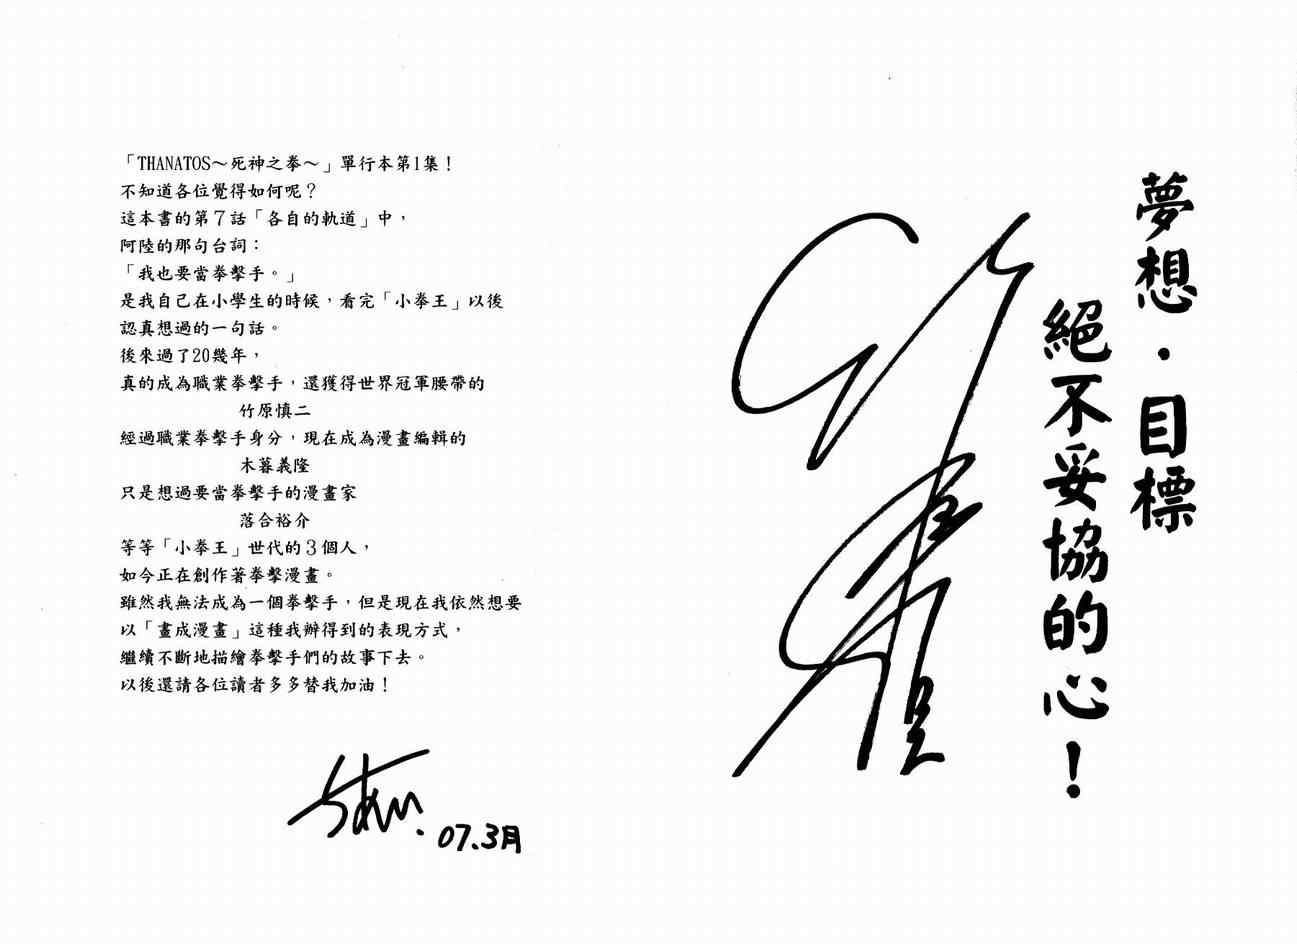 「THANATOS～死神之拳～」單行本第1集！
不知道各位覺得如何呢？
這本書的第７話「各自的軌道」中，
阿陸的那句台詞：
「我也要當拳擊手。」
是我自己在小學生的時候，看完「小拳王」以後
認真想過的一句話。
後來過了20幾年，
真的成為職業拳擊手，還獲得世界冠軍腰帶的
竹原慎二
經過職業拳擊手身分，現在成為漫畫編輯的
木暮義隆
只是想過要當拳擊手的漫畫家
落合裕介
等等「小拳王」世代的３個人，
如今正在創作著拳擊漫畫。
雖然我無法成為一個拳擊手，但是現在我依然想要
以「畫成漫畫」這種我辦得到的表現方式，
繼續不斷地描繪拳擊手們的故事下去。
以後還請各位讀者多多替我加油！
07.3月
夢想．目標
絕不妥協的心！